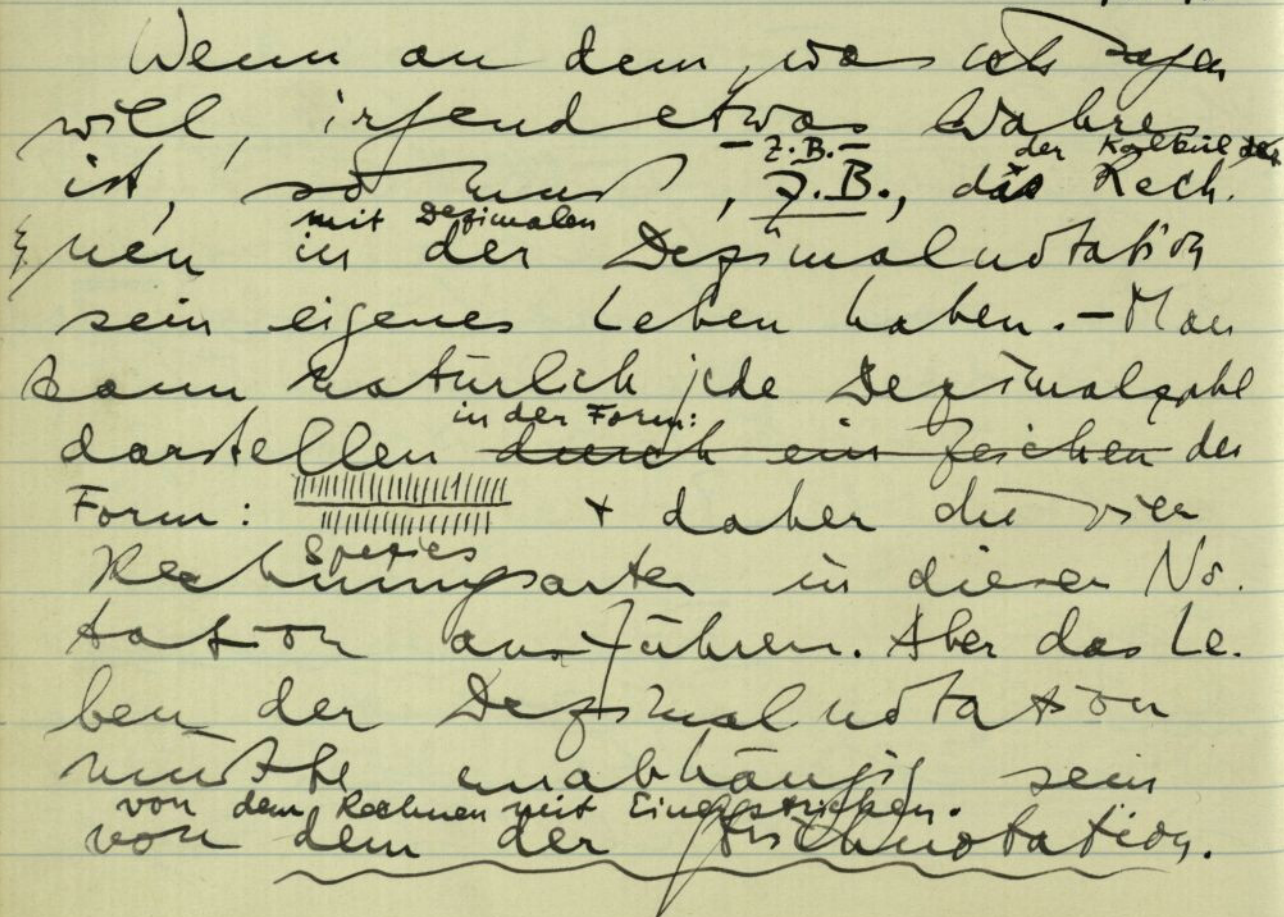 Wenn an dem, was ich sagen
will, irgend etwas Wahres
– Z.B. – der Kalkül der
ist, so muß, Z.B., das Rech.
mit Dezimalen
nen in der Dezimalnotation
sein eigenes Leben haben. – Man
kann natürlich jede Dezimalzahl
in der Form:
darstellen durch ein Zeichen der
Form: + daher die vier
Spezies
Rechnungsarten in dieser No.
tation ausführen. Aber das Le.
ben der Dezimalnotation
müßte unabhängig sein
von dem Rechnen mit Einerstrichen.
von dem der Strichnotation.